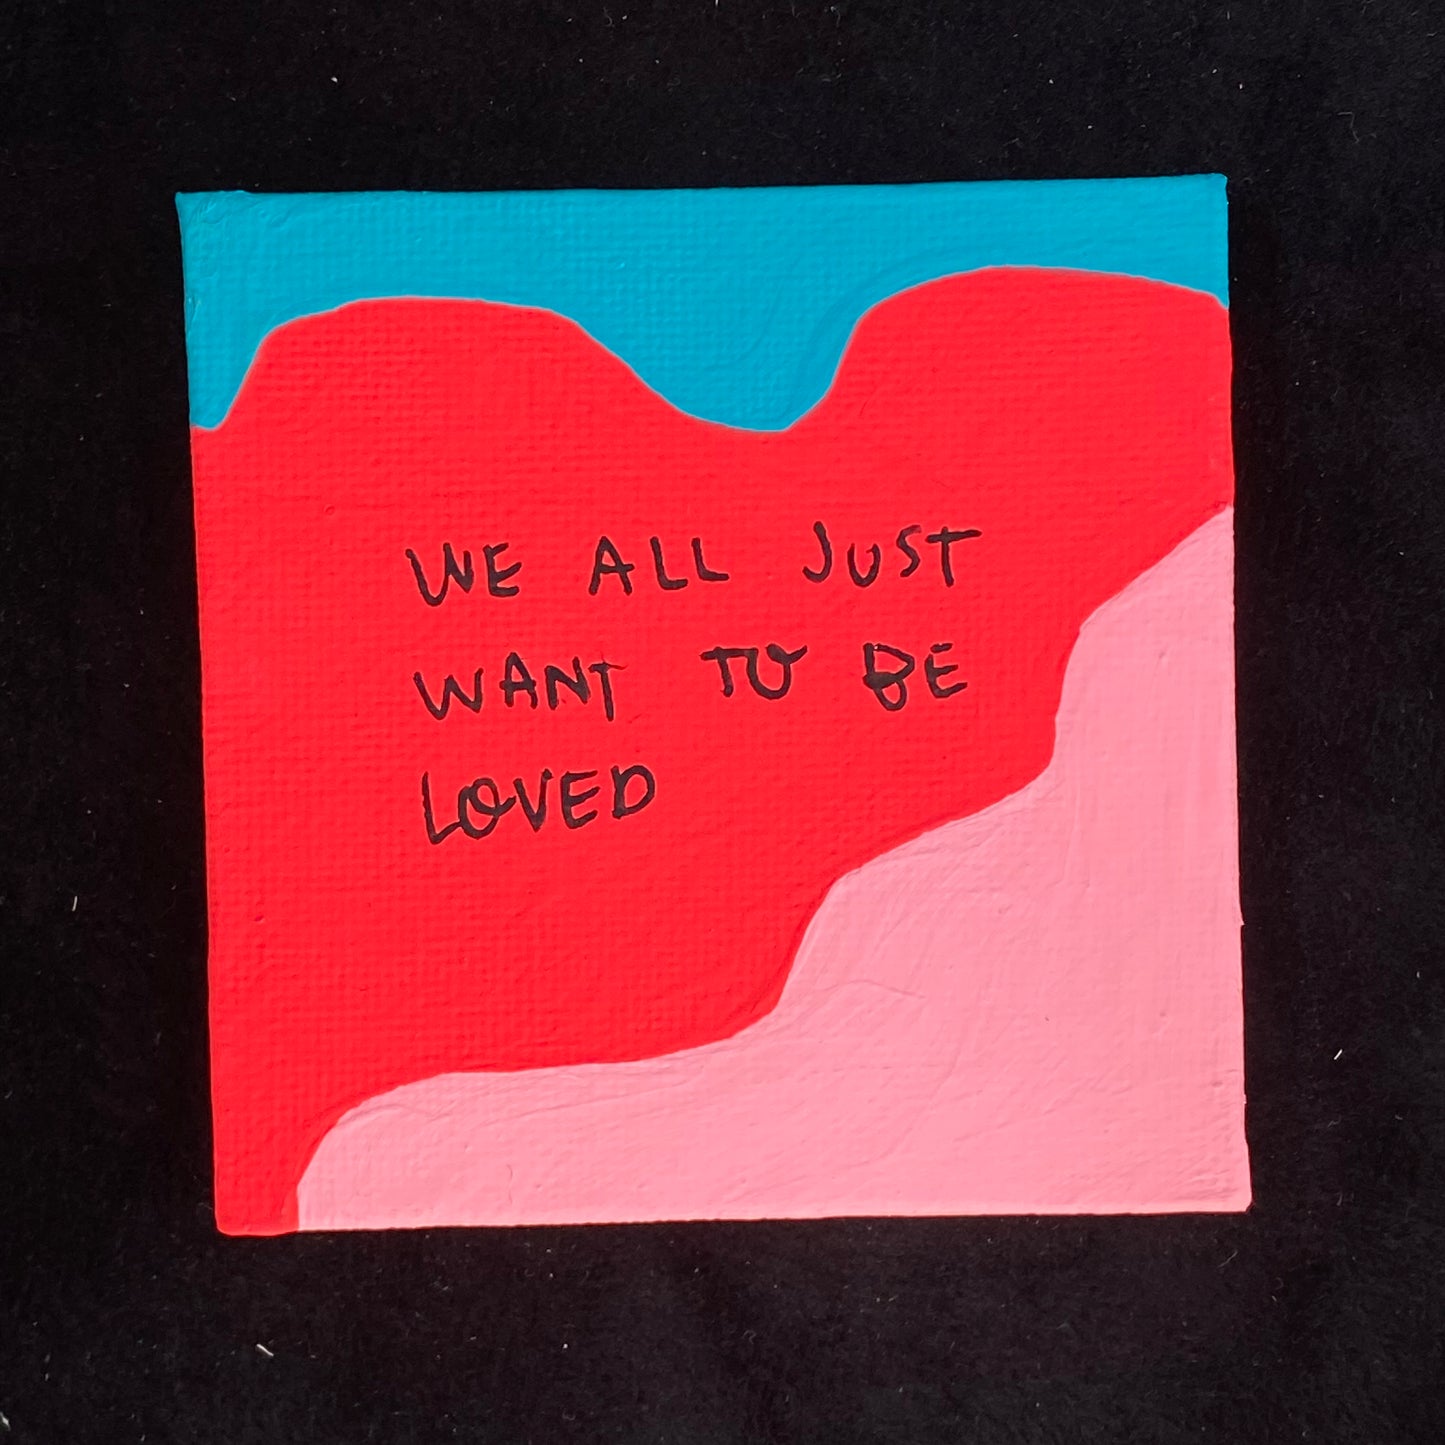 WE ALL JUST
WANT TO BE
LOVED